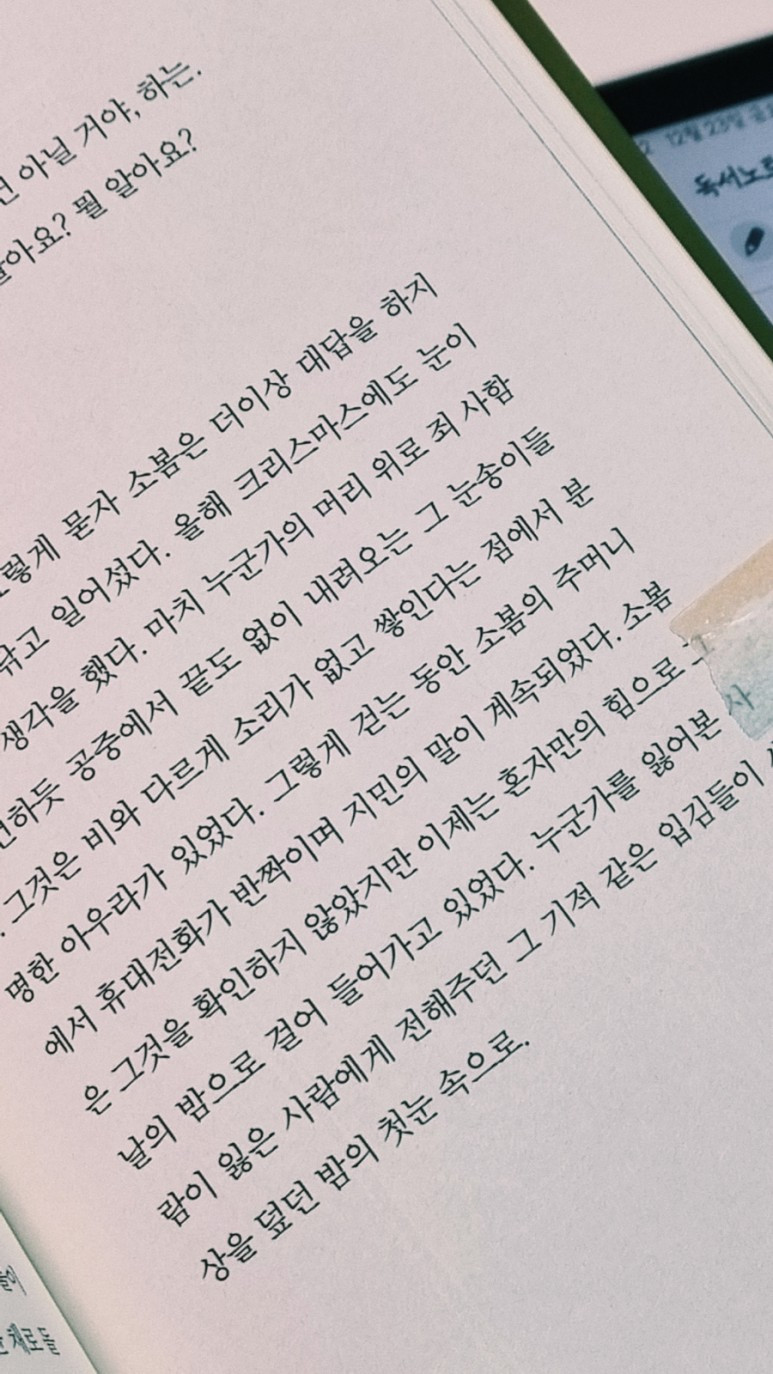 아닐 거야, 하는.
알아요? 뭘 알아요?
묻자 소봄은 더이상 대답을 하지
일어섰다. 올해 크리스마스에도 눈이
생각을 했다. 마치 누군가의 머리 위로 죄 사함
공중에서 끝도 없이 내려오는 그 눈송이들
그것은 비와 다르게 소리가 없고 쌓인다는 점에서 분
명한 아우라가 있었다. 그렇게 걷는 동안 소봄의 주머니
에서 휴대전화가 반짝이며 지민의 말이 계속되었다. 소봄
은 그것을 확인하지 않았지만 이제는 혼자만의 힘으로
날의 밤으로 걸어 들어가고 있었다. 누군가를 잃어본 사
람이 잃은 사람에게 전해주던 그 기적 같은 입김들이
상을 덮던 밤의 첫눈 속으로.
12월 23일
독서노트
채로 들